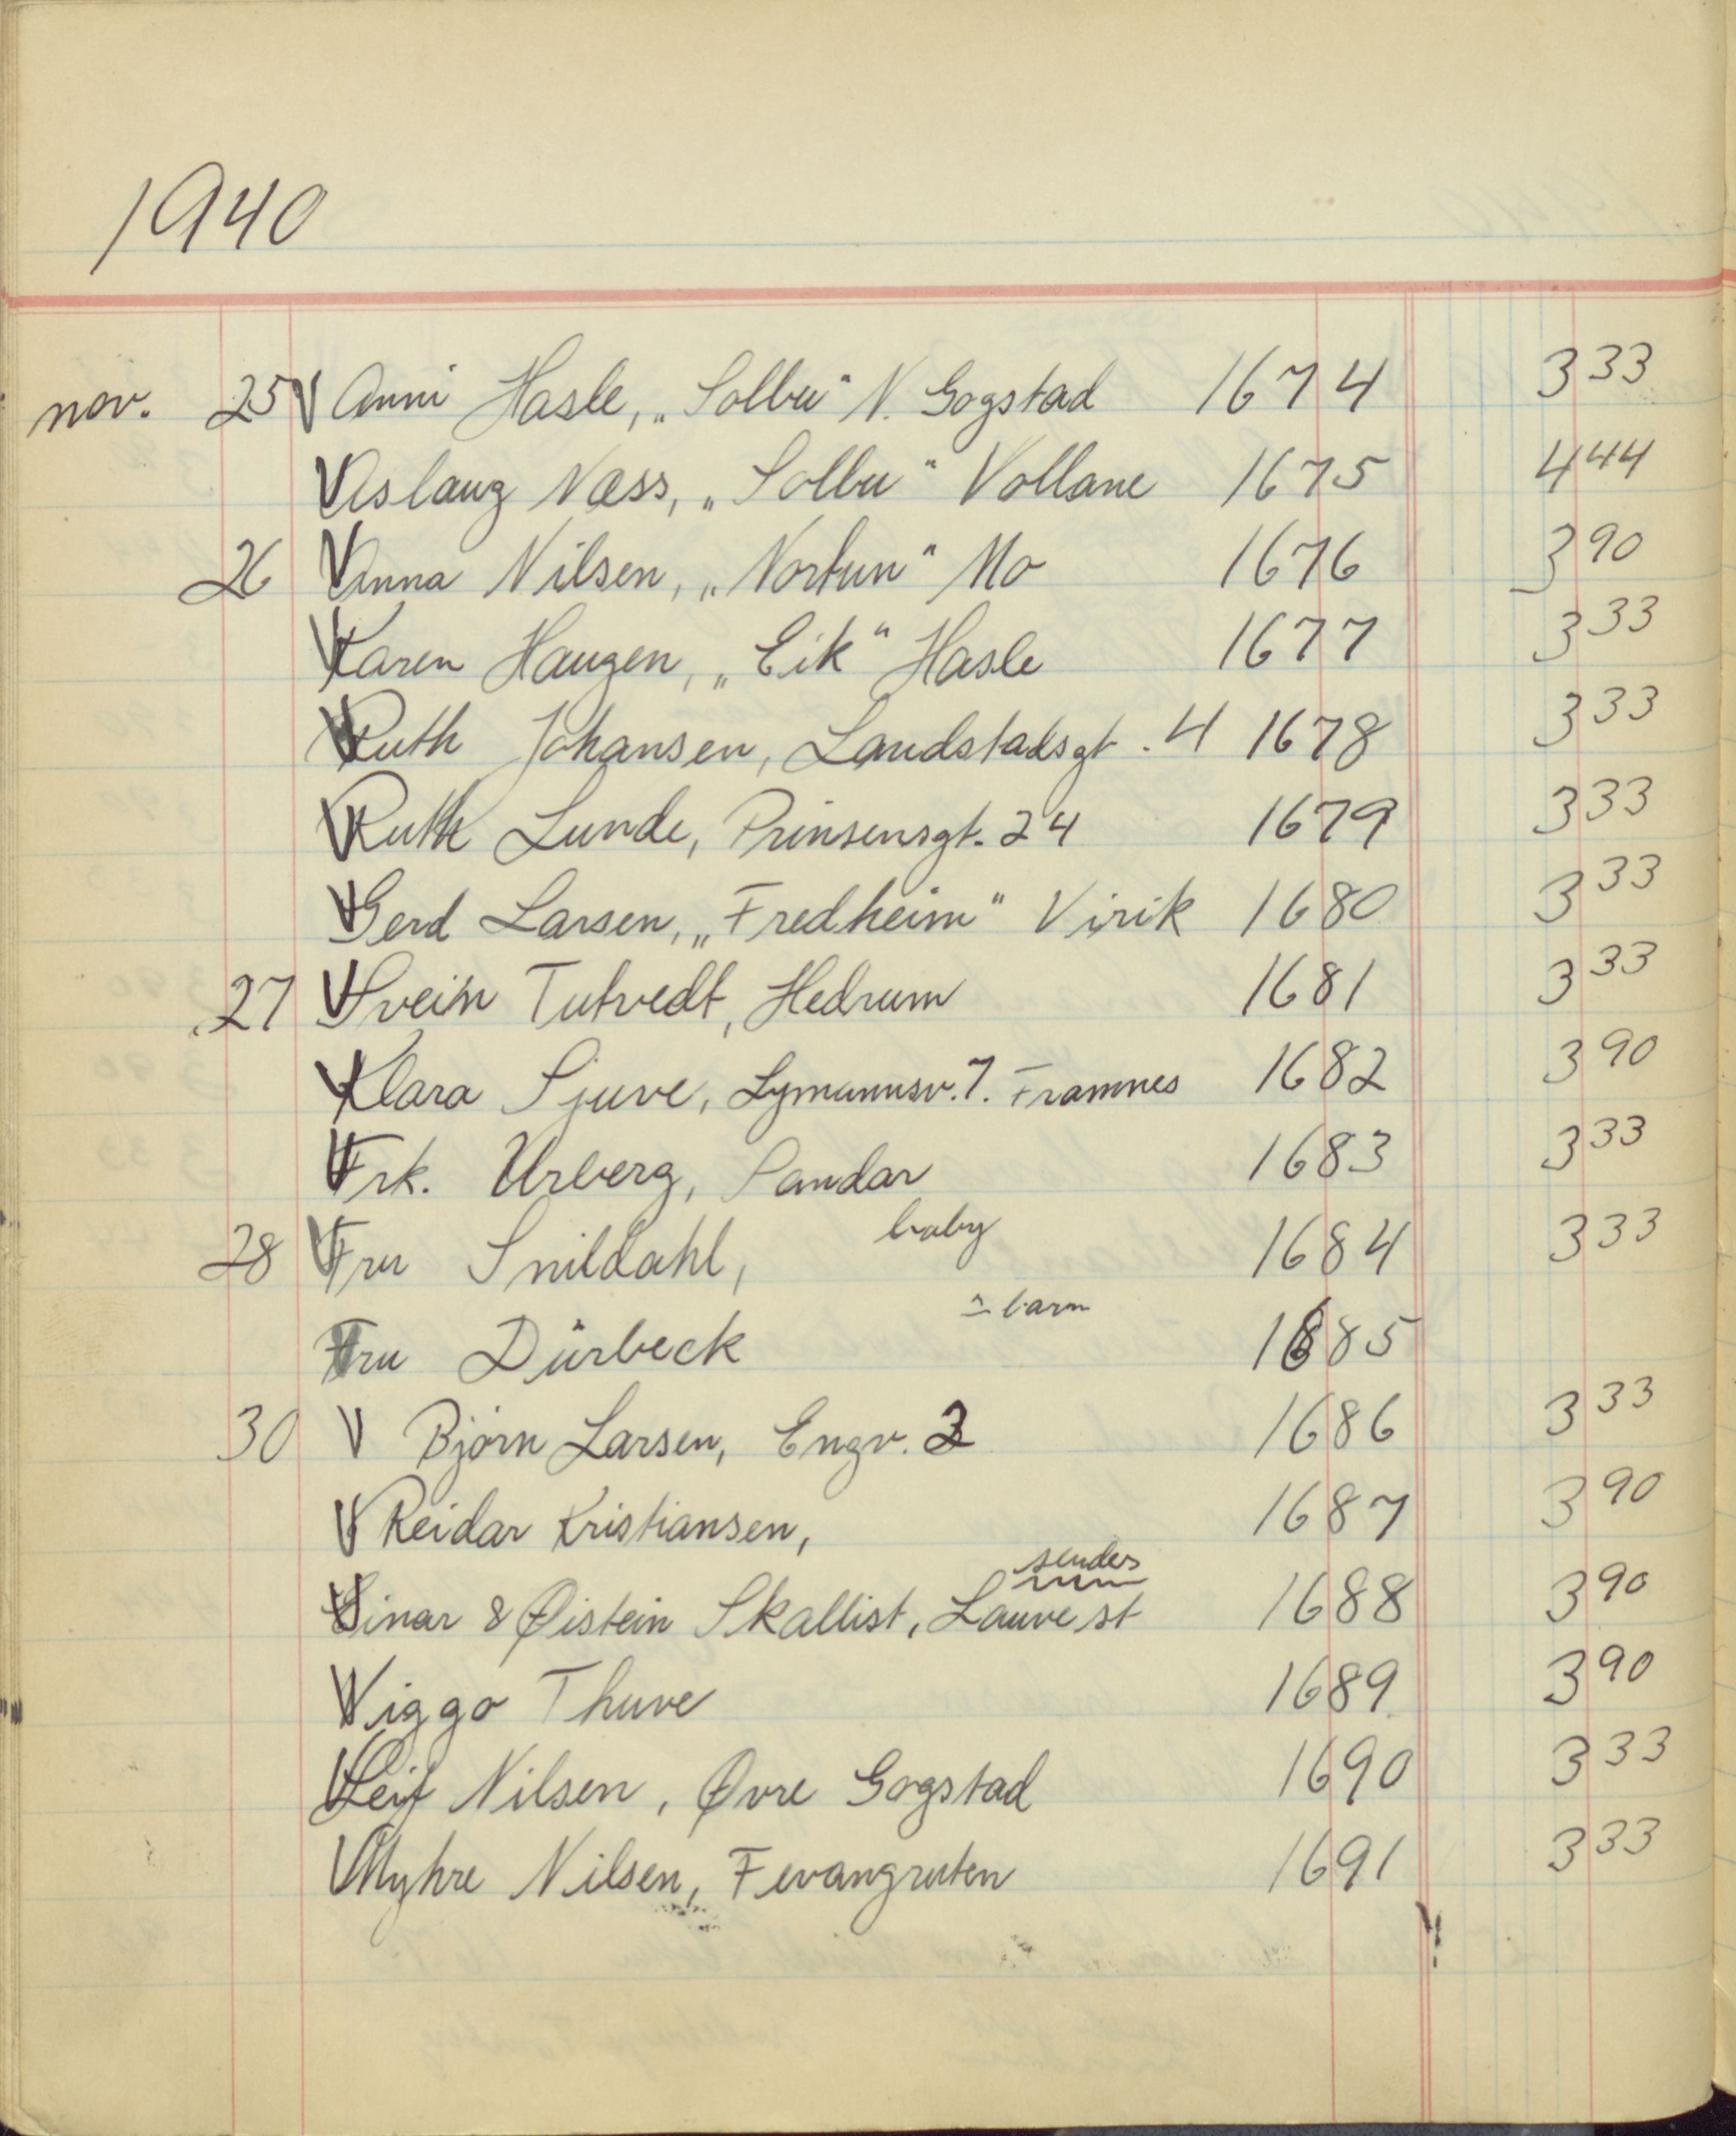 1940
nov. 25 V Anni Hasle, „Solbu" N. Gogstad 1674 3 33
V Aslaug Næss, „Solbu" Vollane 1675 4 44
26 V Anna Nilsen, „Nortun" Mo 1676 3 90
V Karen Haugen, „Eik" Hasle 1677 3 33
V Ruth Johansen, Landstadsgt. 4 1678 3 33
V Ruth Lunde, Prinsensgt. 24 1679 3 33
V Gerd Larsen, „Fredheim" Virik 1680 3 33
27 V Svein Tutvedt, Hedrum 1681 3 33
V Klara Sjuve, Lymannsv. 7. Framnes 1682 3 90
V Frk. Urberg, Sandar 1683 3 33
28 V Fru Snildahl, baby 1684 3 33
V Fru Dürbeck barn 1685
30 V Bjørn Larsen, Engv. 2 1686 3 33
V Reidar Kristiansen, 1687 3 90
sendes
V Einar & Øistein Skallist, Lauve st 1688 3 90
V Viggo Thuve 1689 3 90
V Leif Nilsen, Øvre Gogstad 1690 3 33
V Myhre Nilsen, Fevangruten 1691 3 33